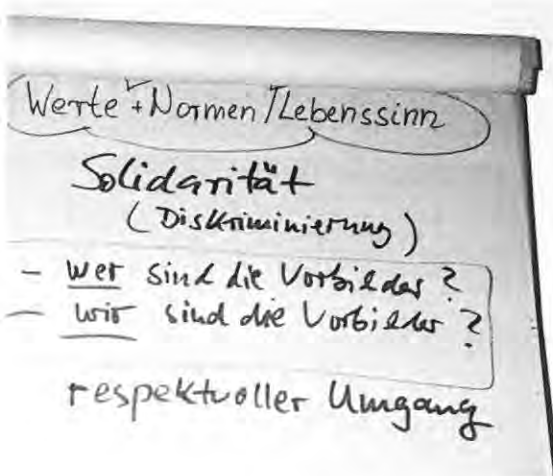 Werte + Normen / Lebenssinn
Solidarität
(Diskriminierung)
- wer sind die Vorbilder ?
- wir sind die Vorbilder ?
respektvoller Umgang